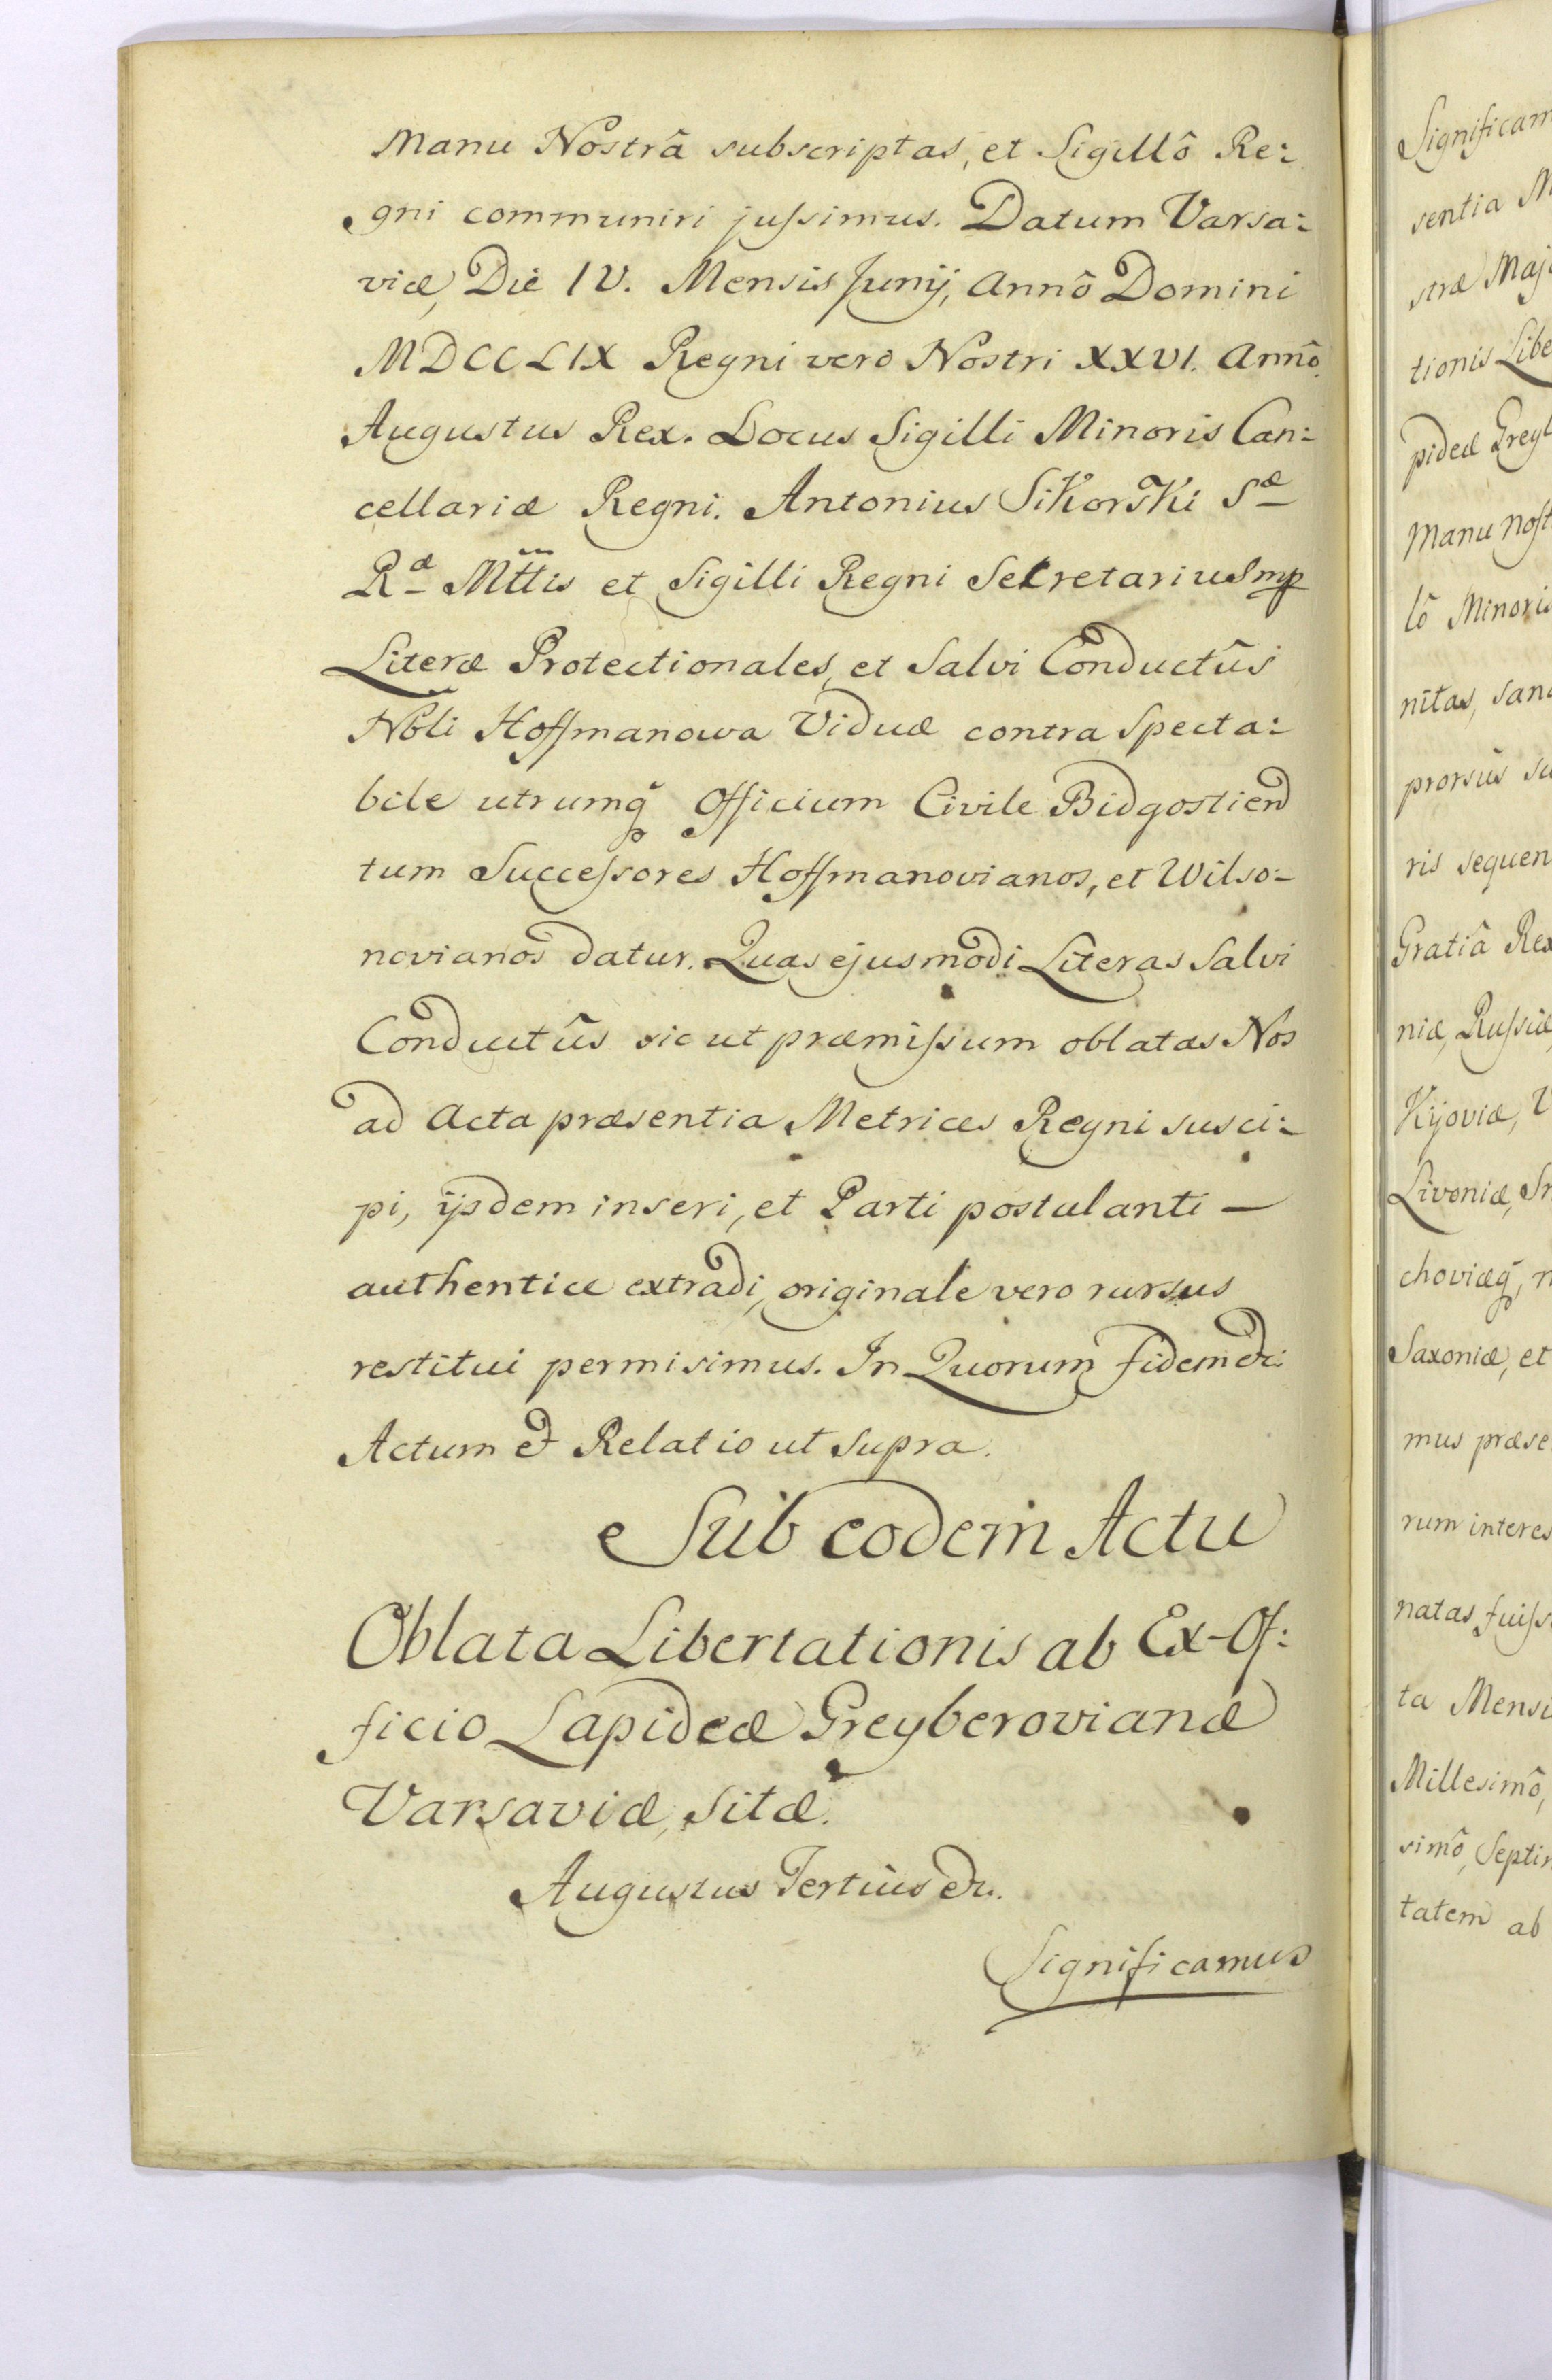 Manu Nostrâ subscriptas, et Sigillô Re:
gni communiri jussimus. Datum Varsa:
viæ, Die IV. Mensis Junij, Annô Domini
MDCCLIX Regni verò Nostri XXVI. Annô.
Augustus Rex. Locus Sigilli Minoris Can:
cellariæ Regni. Antonius Sikorski Sæ
Ræ Mttis et Sigilli Regni Secretarius mp
Literæ Protectionales, et Salvi Conductûs
Nobli Hoffmanowa Viduæ contra Specta:
bile utrumq Officium Civile Bidgostiend
tum Successores Hoffmanovianos, et Wilso:
novianos datur. Quas ejusmodi Literas Salvi
Conductûs sic ut præmissum oblatas Nos
ad Acta præsentia Metrices Regni susci:
pi, ijsdem inseri, et Parti postulanti —
authentice extradi, originale vero rursus
restitui permisimus. In Quorum fidem etc.
Actum et Relatio ut supra.
Sub eodem Actu
Oblata Libertationis ab Ex-Of:
ficio Lapideæ Greyberovianæ
Varsaviæ, sitæ.
Augustus Tertius etc.
Significamus
Significam
sentia M
stræ Maj
tionis Libe
pideæ Greyb
Manu nost
lô Minoris
nitas, san
prorsus su
ris sequen
Gratiâ Rex
niæ, Russiæ,
Kijoviæ, V
Livoniæ, Sm
choviæq, n
Saxoniæ, et
mus præse
rum interes
natas fuiss
ta Mensi
Millesimô,
simô, Septin
tatem ab